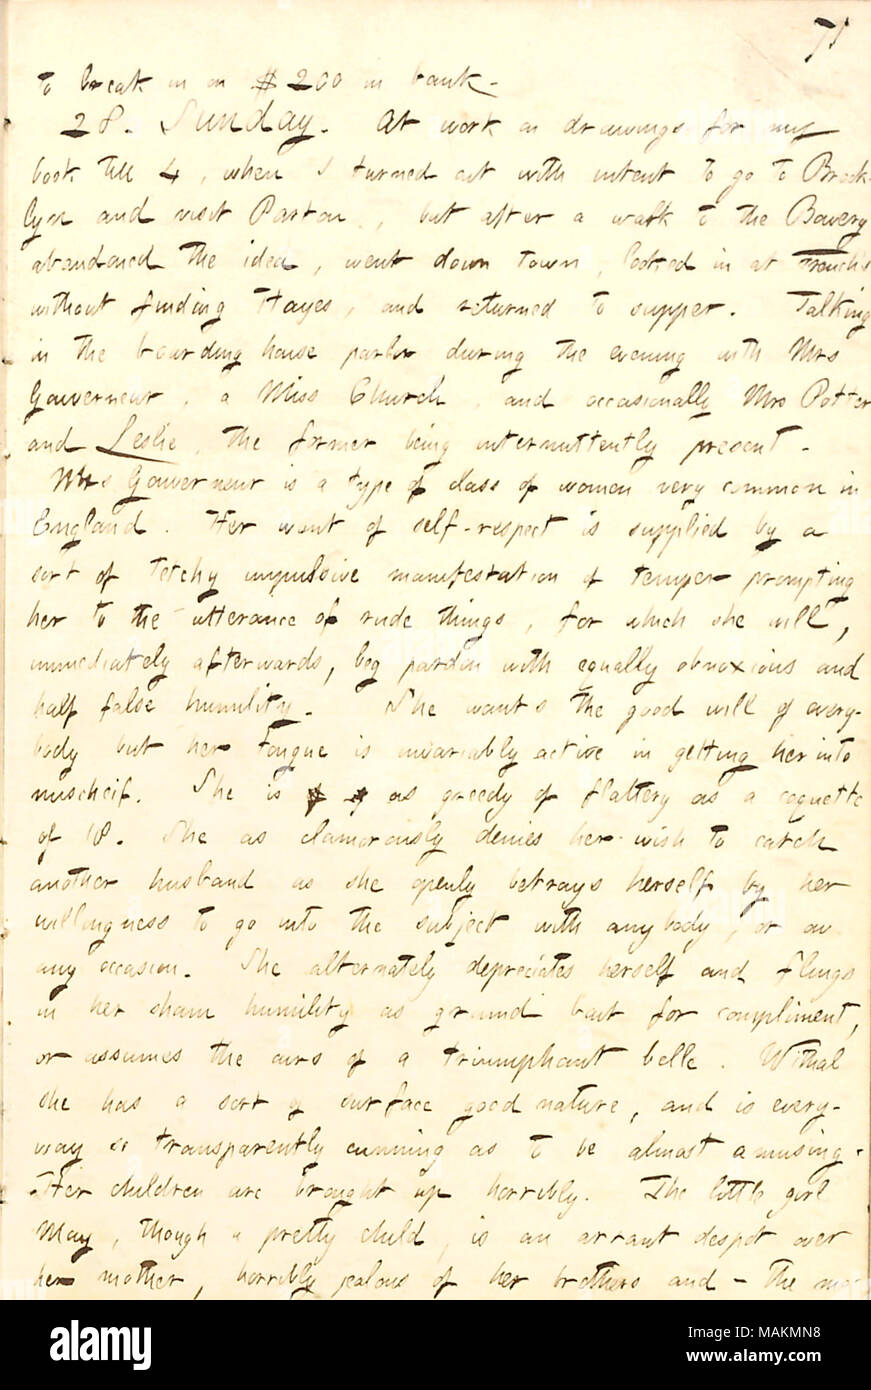 71
to break in on $200 in bank.
28. Sunday. At work on drawings for my
book till 4, when I turned out with intent to go to Brook-
lyn and visit Parton, but after a walk to the Bowery
abandoned the idea, went down town, looked in at French's
without finding Hayes, and returned to supper. Talking
in the boarding house parlor during the evening with Mrs
Gouverneur, a Miss Church, and occasionally Mrs Potter
and Leslie, the former being intermittently present.
Mrs Gouverneur is a type of class of women very common in
England. Her want of self-respect is supplied by a
sort of tetchy impulsive manifestation of temper prompting
her to the utterance of rude things, for which she will,
immediately afterwards, beg pardon with equally obnoxious and
half false humility. She wants the good will of every-
body but her tongue is invariably active in getting her into
mischeif. She is as greedy of flattery as a coquette
of 18. She as clamorously denies her wish to catch
another husband as she openly betrays herself by her
willingness to go into the subject with anybody, or on
any occasion. She alternately depreciates herself and flings
in her sham humility as ground bait for compliment,
or assumes the airs of a triumphant belle. Withal
she has a sort of surface good nature, and is every-
way so transparently cunning as to be almost amusing.
Her children are brought up horribly. The little girl
May, though a pretty child, is an arrant despot over
her mother, horribly jealous of her brothers and — the
alamy
Image ID: MAKMN8
www.alamy.com